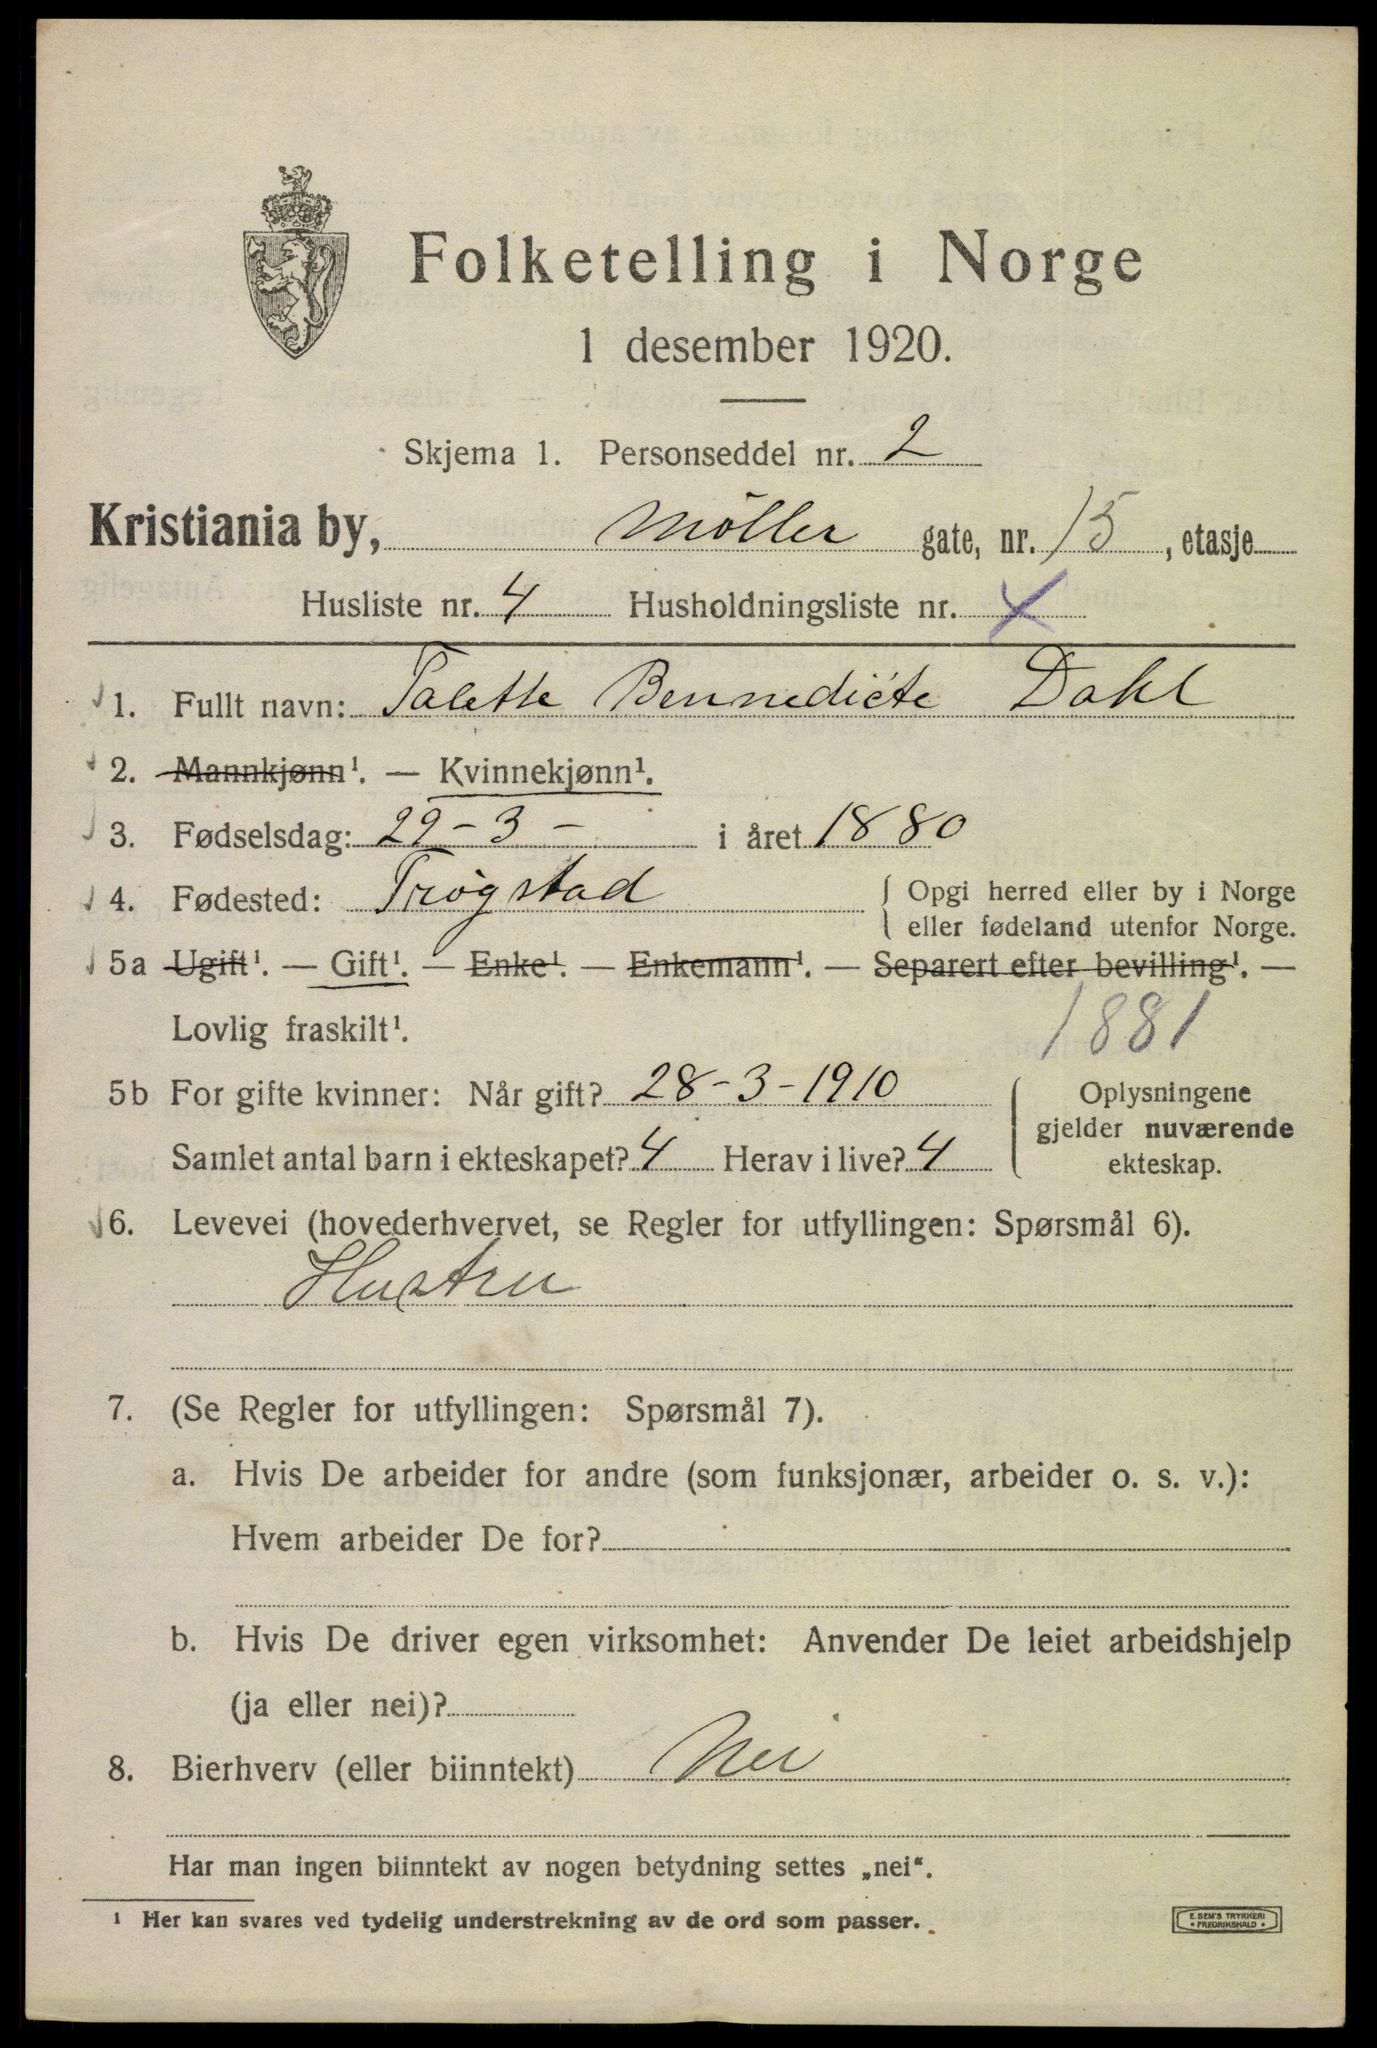 Folketelling i Norge
1 desember 1920.
Skjema 1. Personseddel nr. 2
Kristiania by, Möller gate, nr. 15, etasje
Husliste nr. 4 Husholdningsliste nr.
1. Fullt navn: Talette Bennedicte Dahl
2. Mannkjønn¹. — Kvinnekjønn¹.
3. Fødselsdag: 29-3- i året 1880
4. Fødested: Trøgstad { Opgi herred eller by i Norge
eller fødeland utenfor Norge.
5a Ugift¹. — Gift¹. — Enke¹. — Enkemann¹. — Separert efter bevilling¹. —
Lovlig fraskilt¹. 1881
5b For gifte kvinner: Når gift? 28-3-1910
Samlet antal barn i ekteskapet? 4 Herav i live? 4
Oplysningene
gjelder nuværende
ekteskap.
6. Levevei (hovederhvervet, se Regler for utfyllingen: Spørsmål 6).
Hustru
7. (Se Regler for utfyllingen: Spørsmål 7).
a. Hvis De arbeider for andre (som funksjonær, arbeider o. s. v.):
Hvem arbeider De for?
b. Hvis De driver egen virksomhet: Anvender De leiet arbeidshjelp
(ja eller nei)?
8. Bierhverv (eller biinntekt) Nei
Har man ingen biinntekt av nogen betydning settes „nei“.
¹ Her kan svares ved tydelig understrekning av de ord som passer.
E. SEM'S TRYKKERI
* FREDRIKSHALD *